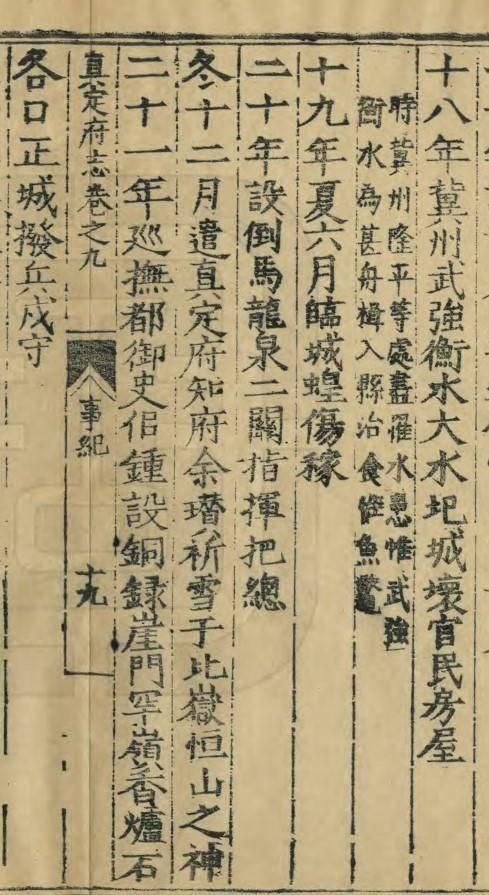 十八年冀州武強衡水大水圮城壞官民房屋
時冀州隆平等處盡罹水患惟武強
衡水為甚舟楫入縣治食惟魚鱉
十九年夏六月臨城蝗傷稼
二十年設倒馬龍泉二關指揮把總
冬十二月遣真定府知府余瓚祈雪于北嶽恒山之神
二十一年巡撫都御史侣鍾設銅録崖門罕嶺香爐石
真定府志卷之九
事紀
十九
各口正城撥兵戍守